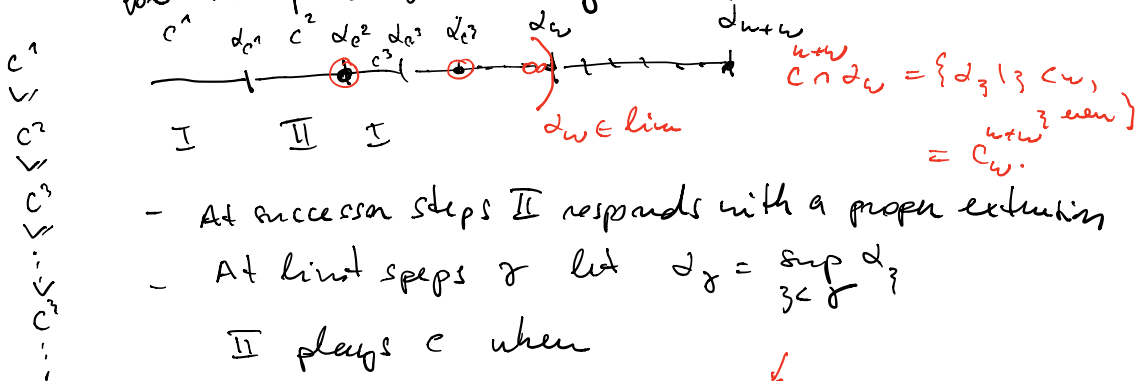 c¹ α_{c¹} c² α_{c²} c³ α_{c³} α_{c³} α_ω α_{ω+ω}
I II I
α_ω ∈ lim
c^{ω+ω} ∩ α_ω = {α_ξ | ξ < ω, ξ even}
= c_ω^{ω+ω}.
c¹
c²
c³
⋮
c^ξ
⋮
- At successor steps II responds with a proper extension
- At limit speps γ let α_γ = sup_{ξ<γ} α_ξ
II plays c when